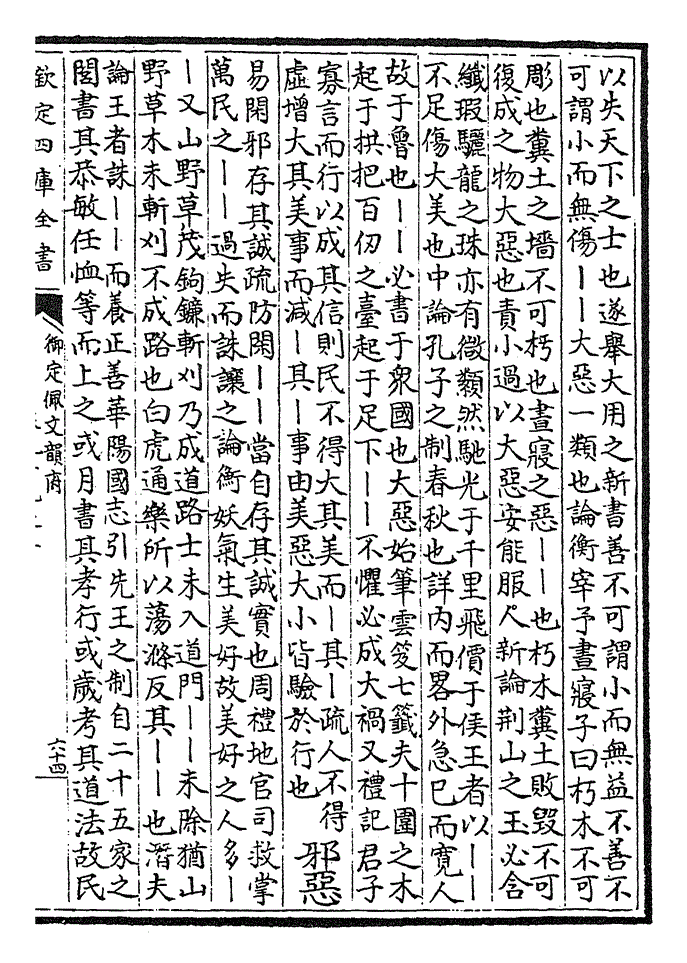 以失天下之士也遂舉大用之新書善不可謂小而無益不善不
可謂小而無傷｜｜大惡一類也論衡宰予晝寢子曰朽木不可
彫也糞土之墻不可杇也晝寢之惡｜｜也朽木糞土敗毀不可
復成之物大惡也責小過以大惡安能服人新論荆山之玉必含
纖瑕驪龍之珠亦有微纇然馳光于千里飛價于侯王者以｜｜
不足傷大美也中論孔子之制春秋也詳内而畧外急已而寛人
故于魯也｜｜必書于衆國也大惡始筆雲笈七籤夫十圍之木
起于拱把百仭之臺起于足下｜｜不懼必成大禍又禮記君子
寡言而行以成其信則民不得大其美而｜其｜疏人不得
虛增大其美事而減｜其｜事由美惡大小皆驗於行也
邪惡
易閑邪存其誠疏防閑｜｜當自存其誠實也周禮地官司救掌
萬民之｜｜過失而誅讓之論衡妖氣生美好故美好之人多｜
｜又山野草茂鉤鐮斬刈乃成道路士未入道門｜｜未除猶山
野草木未斬刈不成路也白虎通樂所以蕩滌反其｜｜也潛夫
論王者誅｜｜而養正善華陽國志引先王之制自二十五家之
閭書其恭敏任恤等而上之或月書其孝行或歲考其道法故民
欽定四庫全書
御定佩文韻府
六十四